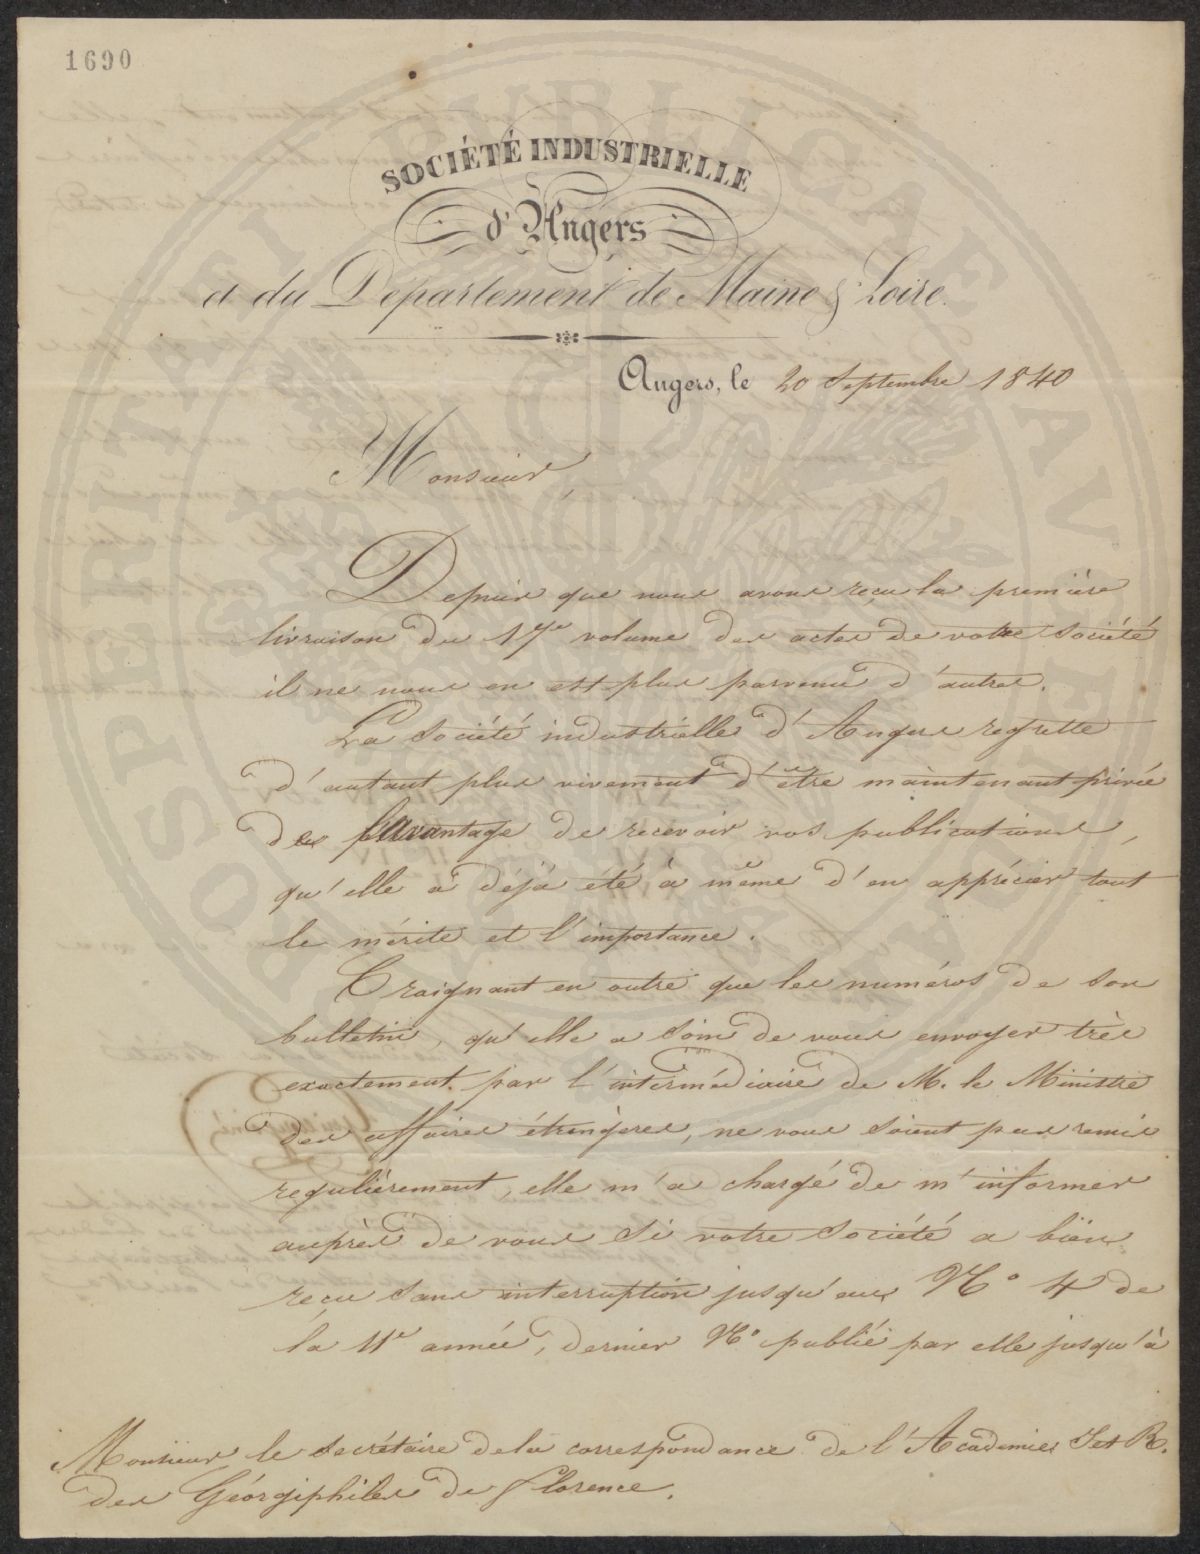 1690
SOCIÉTÉ INDUSTRIELLE
d'Angers
et du Département de Maine & Loire.
Angers, le 20 Septembre 1840
Monsieur,
Depuis que nous avons reçu la première
livraison du 17e volume des actes de votre Société
il ne nous en est plus parvenu d'autres.
La Société industrielle d'Angers regrette
d'autant plus vivement d'être maintenant privée
de l'avantage de recevoir vos publications,
qu'elle a déjà été à même d'en apprécier tout
le mérite et l'importance.
Craignant en outre que les numéros de son
bulletin, qu'elle a soin de vous envoyer très
exactement par l'intermédiaire de M. le Ministre
des affaires étrangères, ne vous soient pas remis
regulièrement, elle m'a chargé de m'informer
auprès de vous si votre Société a bien
reçu sans interruption jusqu'au No 4 de
la 11e année, dernier No publié par elle jusqu'à
Monsieur le Secrétaire de la correspondance de l'Académie I et R.
des Géorgiphiles de Florence.
PROSPERITATI PUBLICAE AUGENDAE